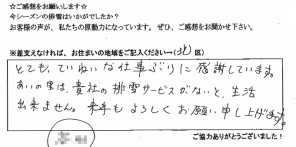 ☆ご感想をお願いします☆
今シーズンの排雪はいかがでしたか？
お客様の声が、私たちの原動力になっています。ぜひ、ご感想をお聞かせ下さい。
※差支えなければ、お住まいの地域をご記入ください→(北 区)
とても、ていねいな仕事ぶりに感謝しています。
あいの里は、貴社の排雪サービスがないと、生活
出来ません。来季もよろしくお願い申し上げます。
ご協力ありがとうございました！